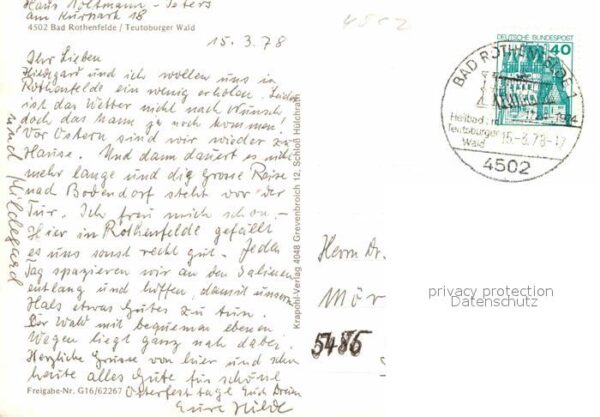 Haus Voltmann - Peters
am Kurpark 18
4502 Bad Rothenfelde / Teutoburger Wald
4502
15.3.78
Ihr Lieben
Hildegard und ich wollen uns in
Rothenfelde ein wenig erholen. Leider
ist das Wetter nicht nach Wunsch
doch das kann ja noch kommen!
Vor Ostern sind wir wieder zu
Hause. Und dann dauert es nicht
mehr lange und die grosse Reise
nach Bodendorf steht vor der
Tür. Ich freu mich schon. -
Hier in Rothenfelde gefällt
es uns sonst recht gut. Jeden
Tag spazieren wir an den Salinen
entlang und hoffen, damit unserm
Hals etwas Gutes zu tun.
Der Wald mit bequemen ebenen
Wegen liegt ganz nah dabei.
Herzliche Grüsse von hier und schon
heute alles Gute für schöne
Osterfesttage Euch Dreien
Eure Hilde
und Hildegard
Freigabe-Nr. G16/62267
Krapohl-Verlag 4048 Grevenbroich 12, Schloß Hülchrath
DEUTSCHE BUNDESPOST
40
BAD ROTHENFELDE 1
1974
Heilbad im
Teutoburger
Wald
15.-3.78-17
4502
Herrn Dr.
Mör
5486
privacy protection
Datenschutz